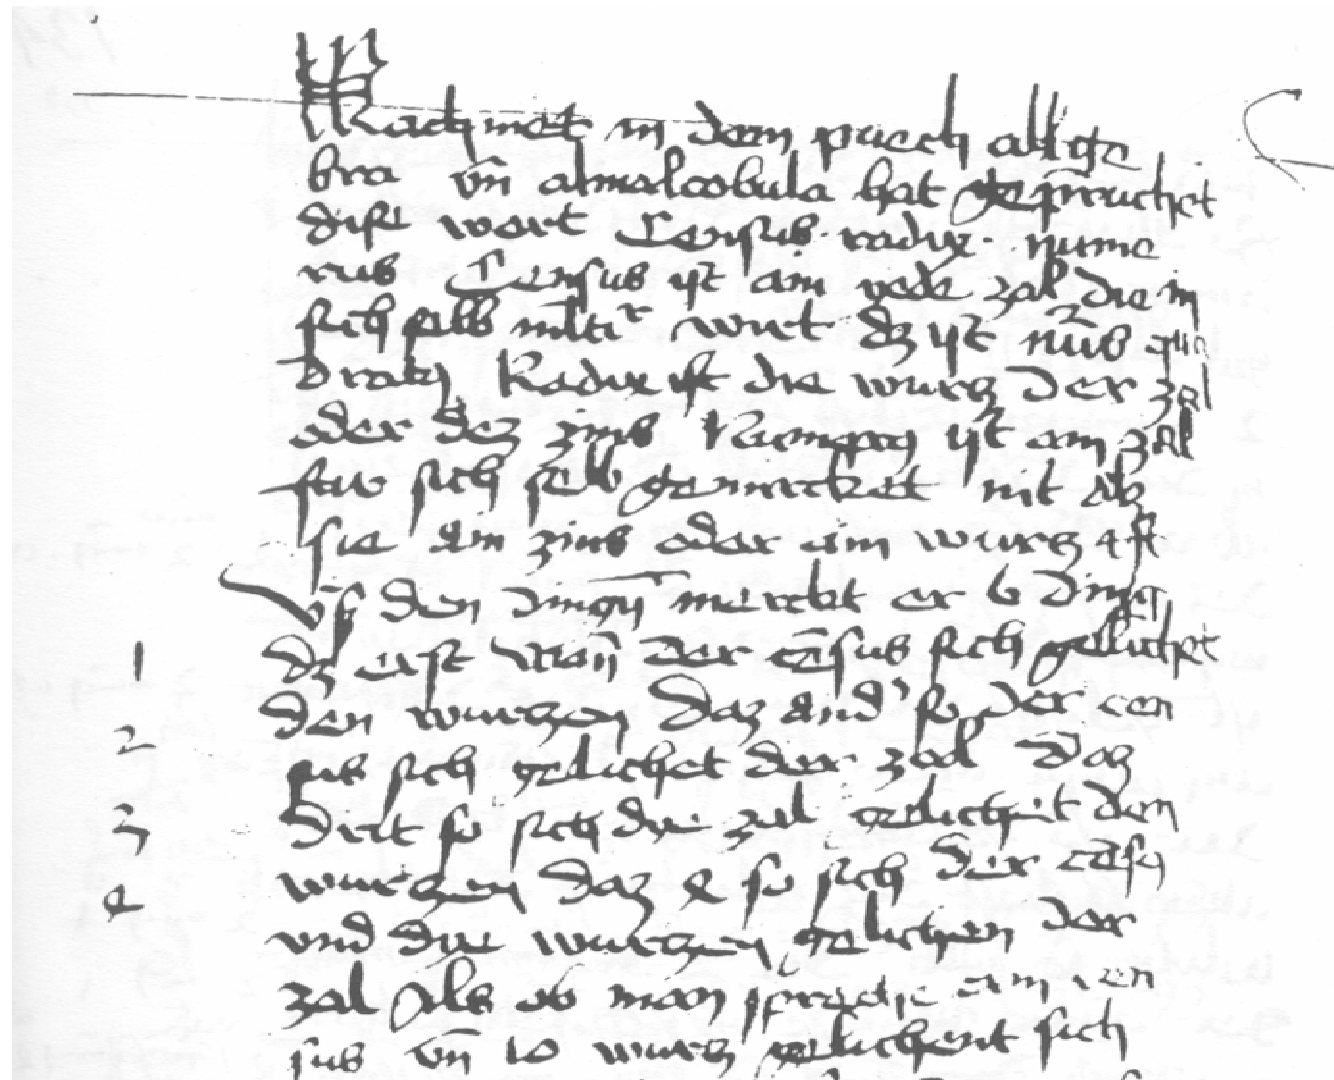 Machmet in dem puech alkge
bra vn̄ almalcobula hat gepruchet
dise wort Census radix nume
rus Census ist ain yede zal die in
sich selb m̄ltir wirt dz ist nūs qua
dratꝫ Radix ist die wurcz der zal
oder dez zins Numerꝫ ist ain zal
fur sich selb gemercket nit alz
sie ain zins oder ain wurcz ist
vß den dingn̄ merckt er 6 ding
1 dz erst wan̄ der cēsus sich gelichet
den wurczen daz and' so der cen
2 sus sich gelichet der zal Daz
3 drit so sich die zal gelichet den
wurczen daz 4 so sich der cēsꝫ
4 vnd die wurczen gelichen der
zal Als ob man sprache ain cen
sus vn̄ 10 wurcz gelichent sich